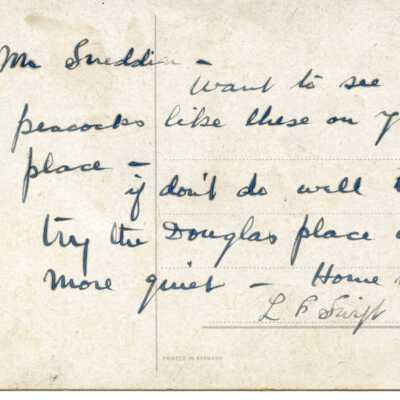 Mr Sneddin –
Want to see
peacocks like these on y
place –
if don't do well t
try the Douglas place
more quiet – Home
L F Swift
PRINTED IN GERMANY